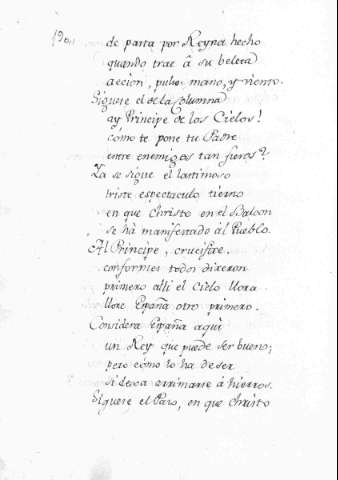 de parta por Reyna hecho
quando trae à su beleta
accion, pulso mano, y viento.
Siguese el de la Columna
ay Principe de los Cielos!
cómo te pone tu Padre
entre enemigos tan fieros?
Ya se sigue el lastimoso
triste espectaculo tierno
en que Christo en el Balcon
se hà manifestado àl Pueblo.
Al Principe, crucifixe,
conformes todos dixeron
primero alli el Cielo llora
llore España otro primero.
Considera España aqui
un Rey que puede ser bueno;
pero cómo lo ha de ser
si dexa arrimarse à hierros.
Siguese el Paso, en que Christo